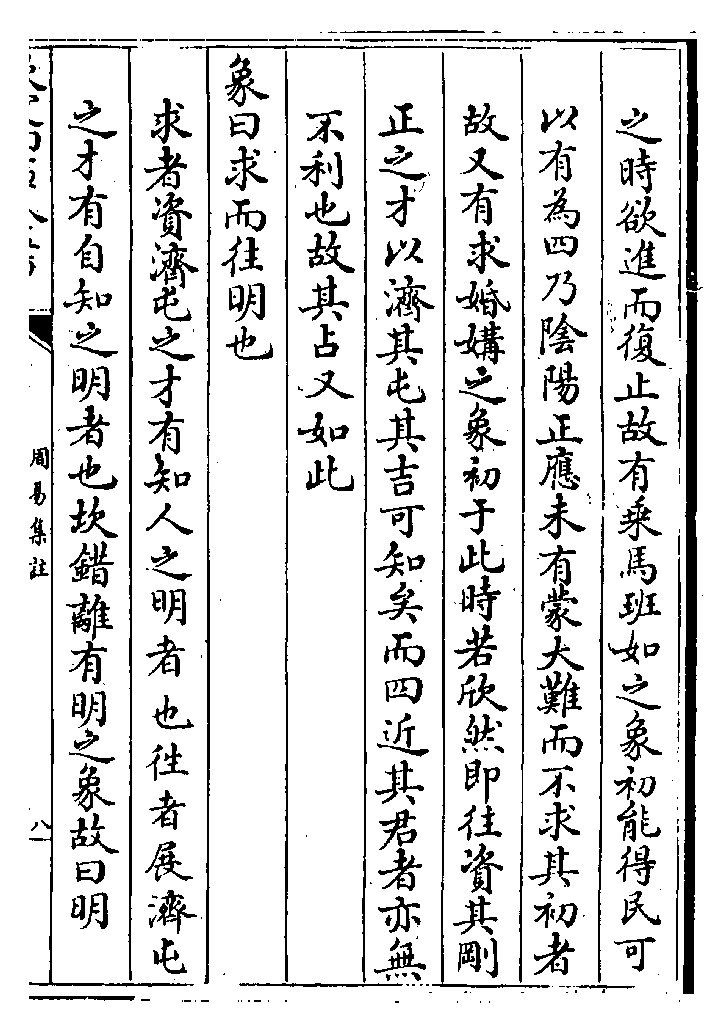 之時欲進而復止故有乘馬班如之象初能得民可
以有為四乃陰陽正應未有蒙大難而不求其初者
故又有求婚媾之象初于此時若欣然即往資其剛
正之才以濟其屯其吉可知矣而四近其君者亦無
不利也故其占又如此
象曰求而往明也
求者資濟屯之才有知人之明者也徃者展濟屯
之才有自知之明者也坎錯離有明之象故曰明
周易集註
八